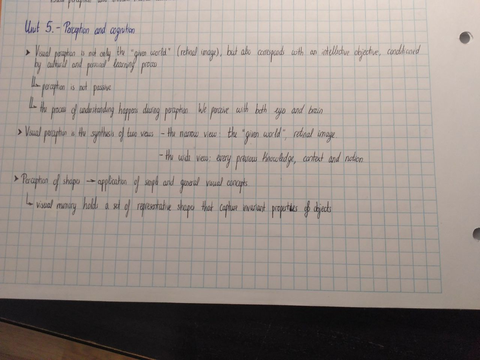 Unit 5.- Perception and cognition
➤ Visual perception is not only the "given world" (retinal image), but also corresponds with an intellective objective, conditioned
by cultural and personal learning process
↳ perception is not passive
↳ the process of understanding happens during perception. We perceive with both eyes and brain
➤ Visual perception is the synthesis of two views - the narrow view: the "given world", retinal image.
- the wide view: every previous knowledge, context and
➤ Perception of shapes → application of simple and general visual concepts
↳ visual memory holds a set of representative shapes that capture invariant properties of objects